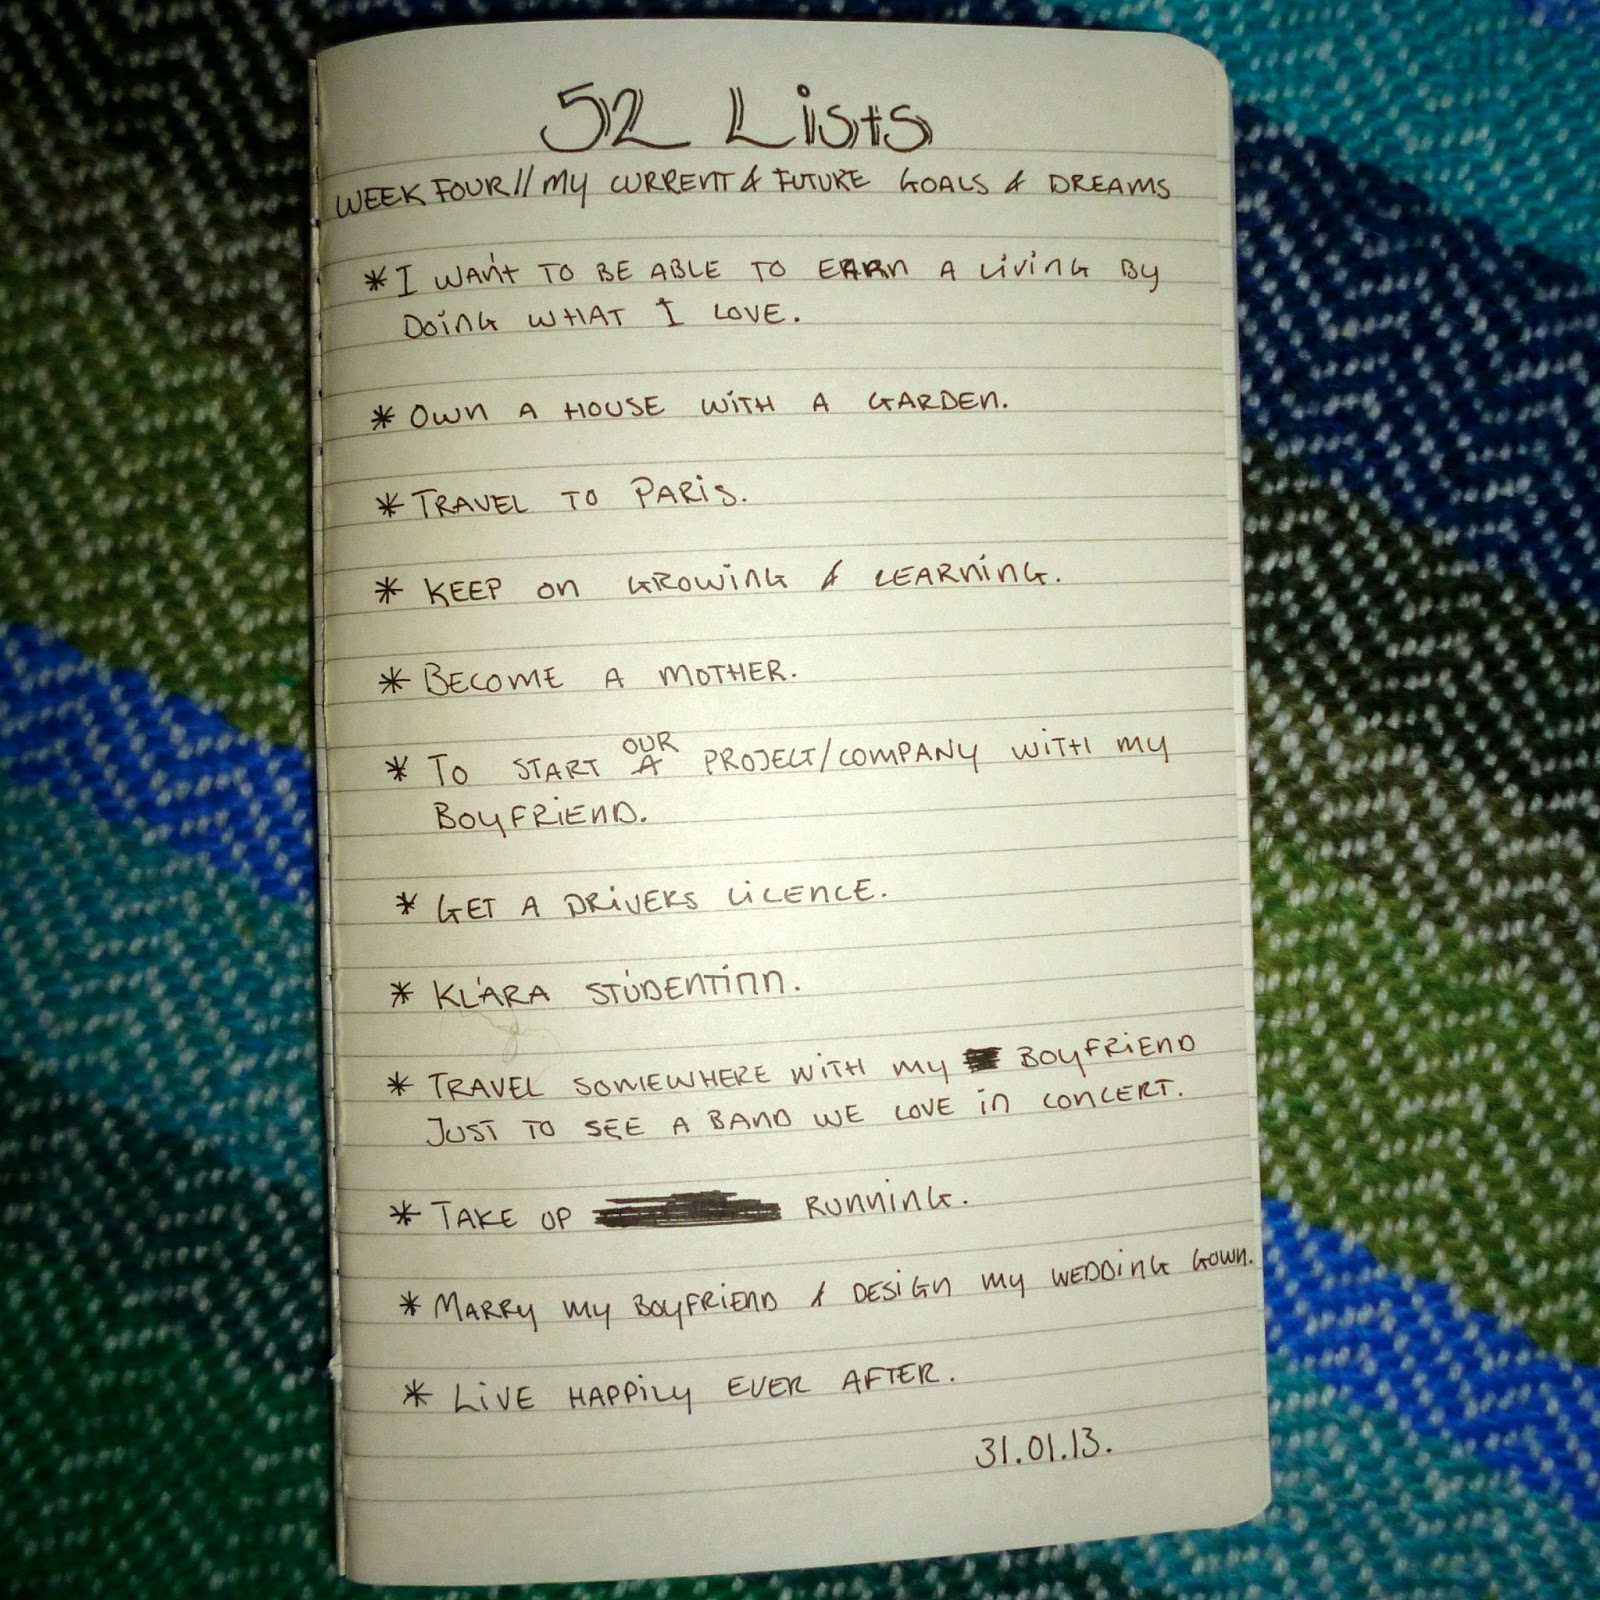 52 Lists
WEEK FOUR // MY CURRENT & FUTURE GOALS & DREAMS
* I WANT TO BE ABLE TO EARN A LIVING BY
DOING WHAT I LOVE.
* OWN A HOUSE WITH A GARDEN.
* TRAVEL TO PARIS.
* KEEP ON GROWING & LEARNING.
* BECOME A MOTHER.
OUR
* TO START A PROJECT/COMPANY WITH MY
BOYFRIEND.
* GET A DRIVERS LICENCE.
* KLÁRA STÚDENTINN.
* TRAVEL SOMEWHERE WITH MY BOYFRIEND
JUST TO SEE A BAND WE LOVE IN CONCERT.
* TAKE UP RUNNING.
* MARRY MY BOYFRIEND & DESIGN MY WEDDING GOWN.
* LIVE HAPPILY EVER AFTER.
31.01.13.